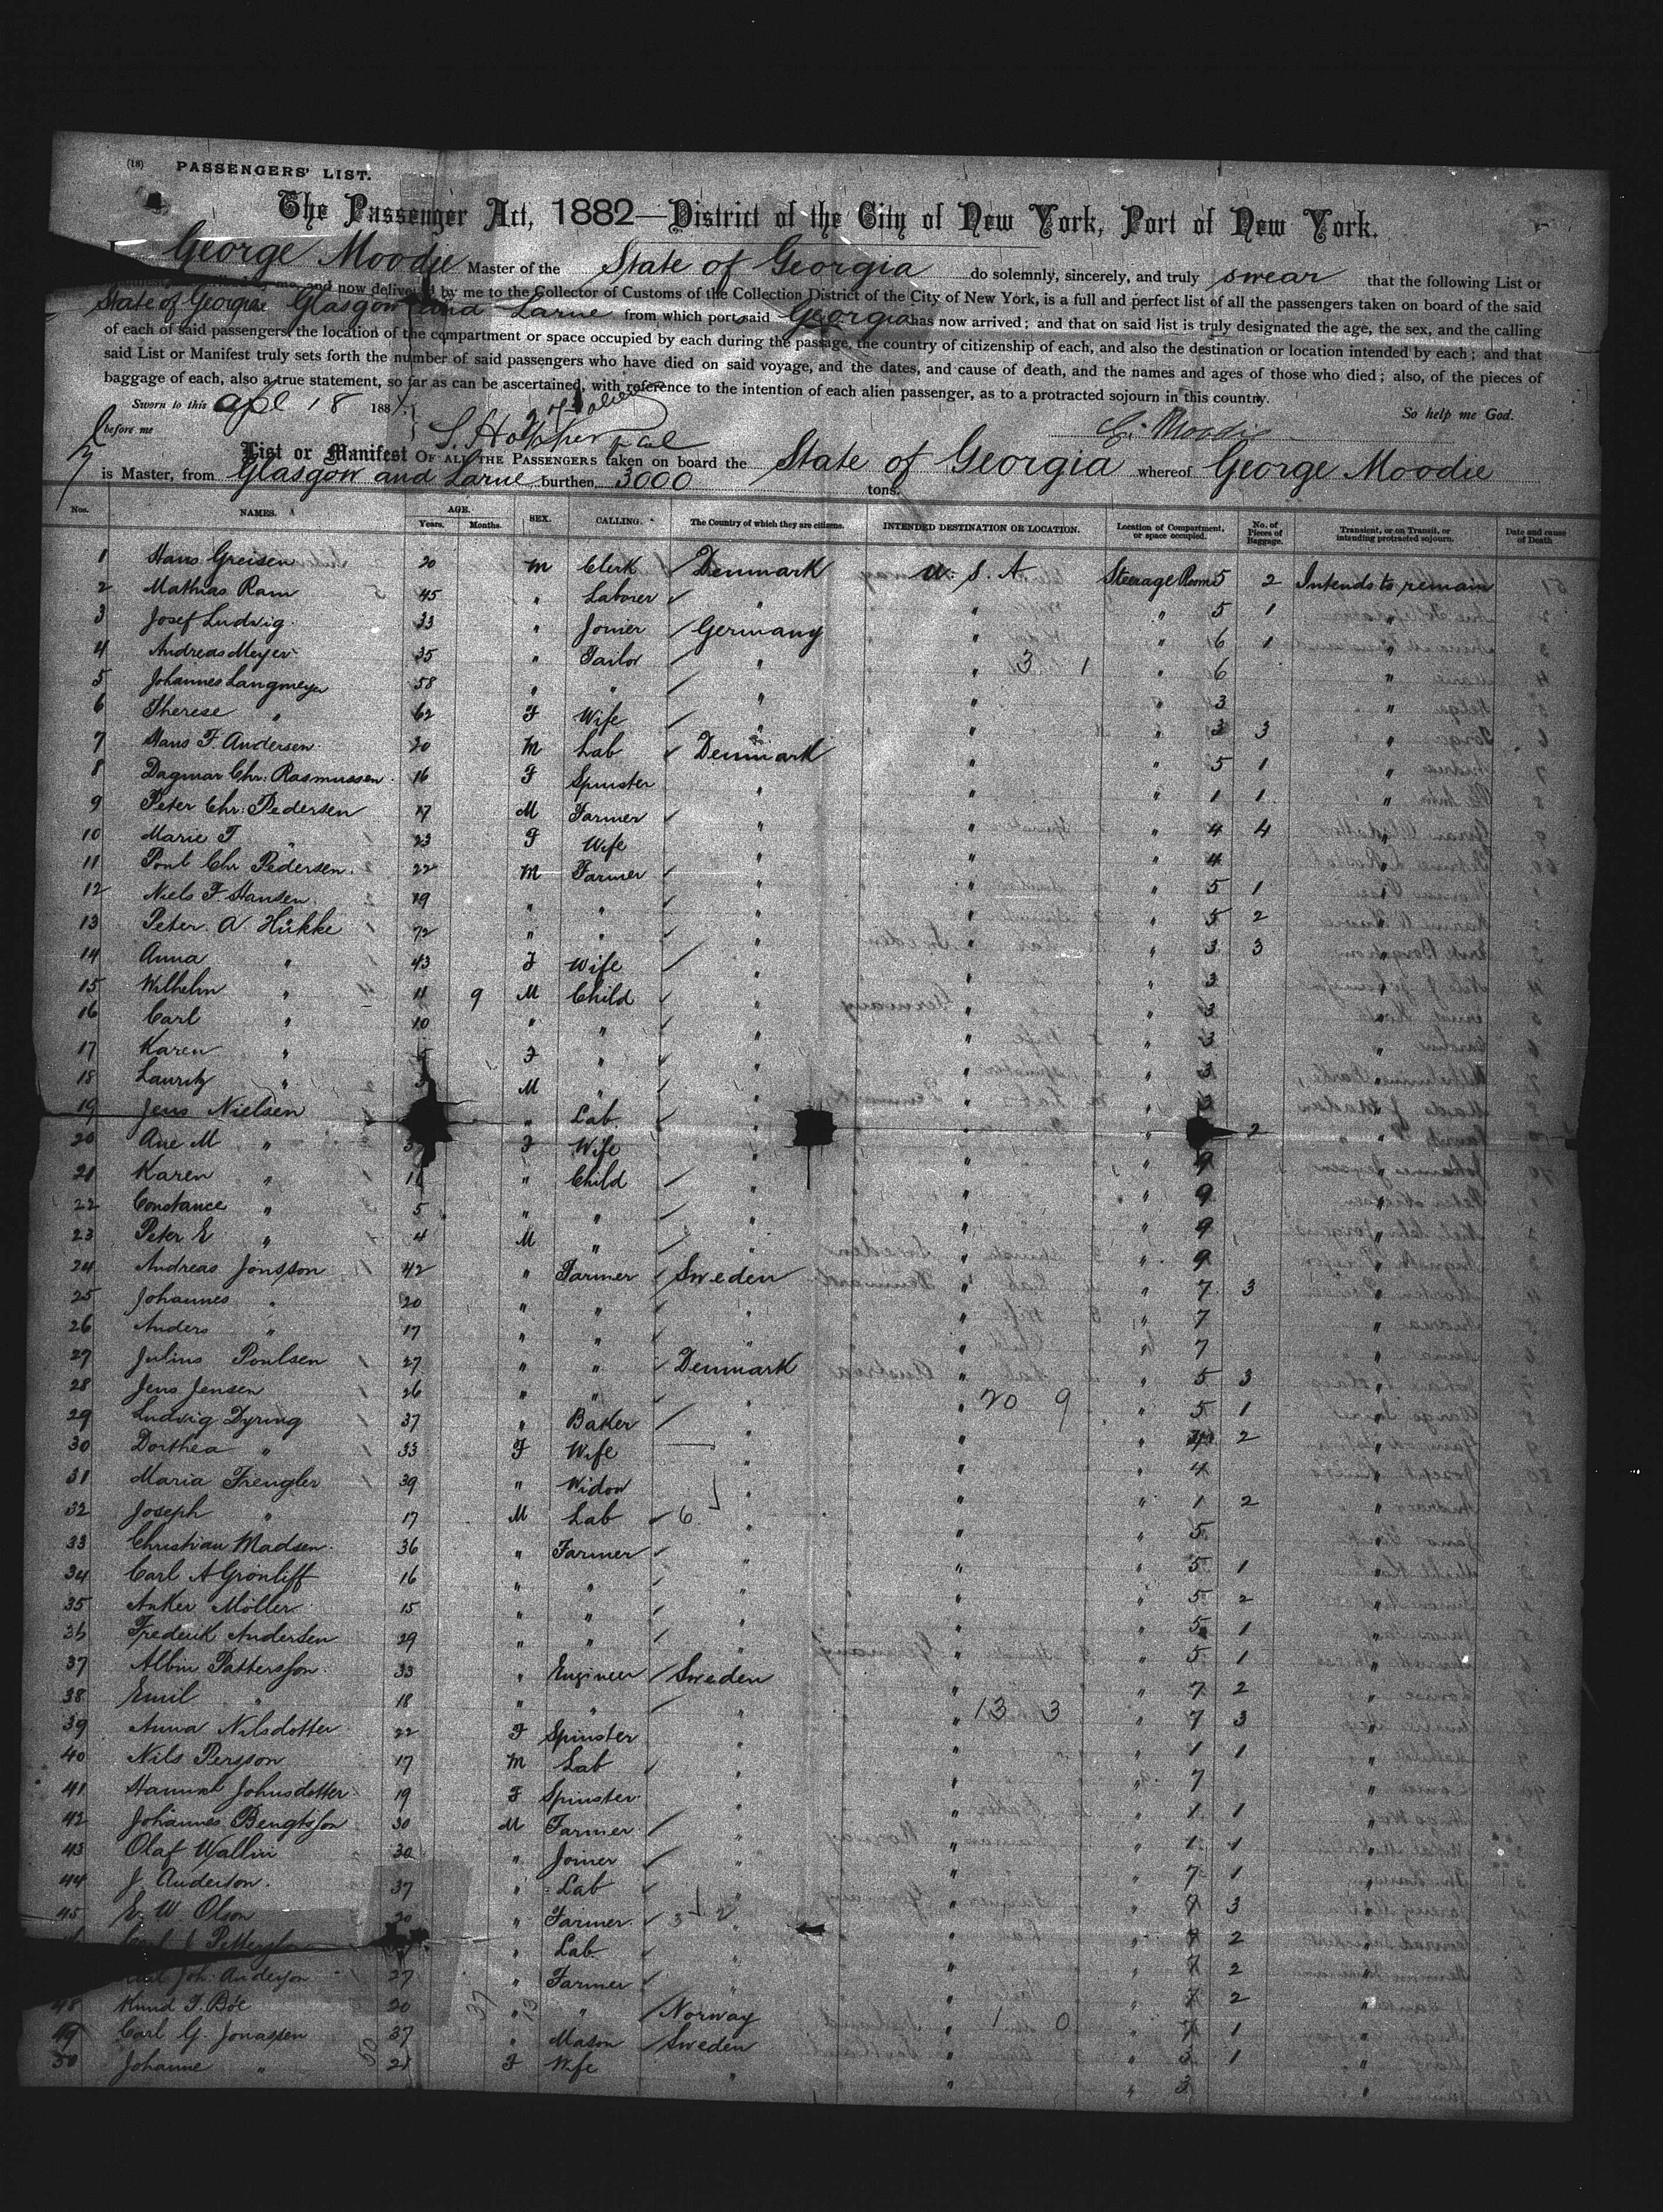 (18) PASSENGERS' LIST.
The Passenger Act, 1882—District of the City of New York, Port of New York.
George Moodie Master of the State of Georgia do solemnly, sincerely, and truly swear that the following List or
me, and now delivered by me to the Collector of Customs of the Collection District of the City of New York, is a full and perfect list of all the passengers taken on board of the said
State of Georgia Glasgow and Larne from which port said Georgia has now arrived; and that on said list is truly designated the age, the sex, and the calling
of each of said passengers, the location of the compartment or space occupied by each during the passage, the country of citizenship of each, and also the destination or location intended by each; and that
said List or Manifest truly sets forth the number of said passengers who have died on said voyage, and the dates, and cause of death, and the names and ages of those who died; also, of the pieces of
baggage of each, also a true statement, so far as can be ascertained, with reference to the intention of each alien passenger, as to a protracted sojourn in this country.
Sworn to this Apl 18 188 So help me God.
before me G. Moodie
List or Manifest OF ALL THE PASSENGERS taken on board the State of Georgia whereof George Moodie
is Master, from Glasgow and Larne burthen 3000 tons.
Nos. NAMES. AGE. Years. Months. SEX. CALLING. The Country of which they are citizens. INTENDED DESTINATION OR LOCATION. Location of Compartment, or space occupied. No. of Pieces of Baggage. Transient, or on Transit, or intending protracted sojourn. Date and cause of Death
1 Hans Greisen 20 M Clerk Denmark U. S. A Steerage Room 5 2 Intends to remain
2 Mathias Ram 45 " Laborer " " " 5 1 "
3 Josef Ludwig 33 " Joiner Germany " " 6 1 "
4 Andreas Meyer 35 " Tailor " " 13 1 " 6 "
5 Johannes Langmeyer 58 " " " " " 3 "
6 Therese " 62 F Wife " " " 3 3 "
7 Hans F. Andersen 20 M Lab Denmark " " 5 1 "
8 Dagmar Chr: Rasmussen 16 F Spinster " " " 1 1 "
9 Peter Chr: Pedersen 17 M Farmer " " " 4 4 "
10 Marie F " 23 F Wife " " " 4 "
11 Poul Chr Pedersen 22 M Farmer " " " 5 1 "
12 Niels F. Hansen 19 " " " " " 5 2 "
13 Peter. A Hükke 72 " " " " " 3 3 "
14 Anna " 43 F Wife " " " 3 "
15 Wilhelm " 11 9 M Child " " " 3 "
16 Carl " 10 " " " " " 3 "
17 Karen " 5 F " " " " 3 "
18 Lauritz " M " " " " 3 "
19 Jens Nielsen " Lab " " " 2 "
20 Ane M " F Wife " " " 9 "
21 Karen " " Child " " " 9 "
22 Constance " 5 " " " " " 9 "
23 Peter E " 4 M " " " " 9 "
24 Andreas Jonsson 42 " Farmer Sweden " " 7 3 "
25 Johannes " 20 " " " " " 7 "
26 Anders " 17 " " " " " 7 "
27 Julius Poulsen 27 " " Denmark " " 5 3 "
28 Jens Jensen 26 " " " " 20 9 " 5 1 "
29 Ludvig Dyring 37 " Baker " " " 2 "
30 Dorthea " 33 F Wife " " " 4 "
31 Maria Frengler 39 " Widow " " " 1 2 "
32 Joseph " 17 M Lab 6 " " " 5 "
33 Christian Madsen 36 " Farmer " " " 5 1 "
34 Carl A Gronliff 16 " " " " " 5 2 "
35 Anker Möller 15 " " " " " 5 1 "
36 Frederik Andersen 29 " " " " " 5 1 "
37 Albin Pattersson 33 " Engineer Sweden " " 7 2 "
38 Emil " 18 " " " " 13 3 " 7 3 "
39 Anna Nilsdotter 22 F Spinster " " " 1 1 "
40 Nils Persson 17 M Lab " " " 7 "
41 Hannah Johnsdotter 19 F Spinster " " " 1 1 "
42 Johannes Bengtsson 30 M Farmer " " " 1 1 "
43 Olaf Wallin 30 " Joiner " " " 7 1 "
44 J. Anderson 37 " Lab " " " 7 3 "
45 E. W Olson 20 " Farmer " " " 7 2 "
Pettersson " Lab " " " 7 2 "
Joh: Anderson 27 " Farmer " " " 7 2 "
48 Knud T. Böe 20 " " Norway " 1 0 " 7 1 "
49 Carl G. Jonassen 37 " Mason Sweden " " 3 1 "
50 Johanne " 21 F Wife " " " 3 "